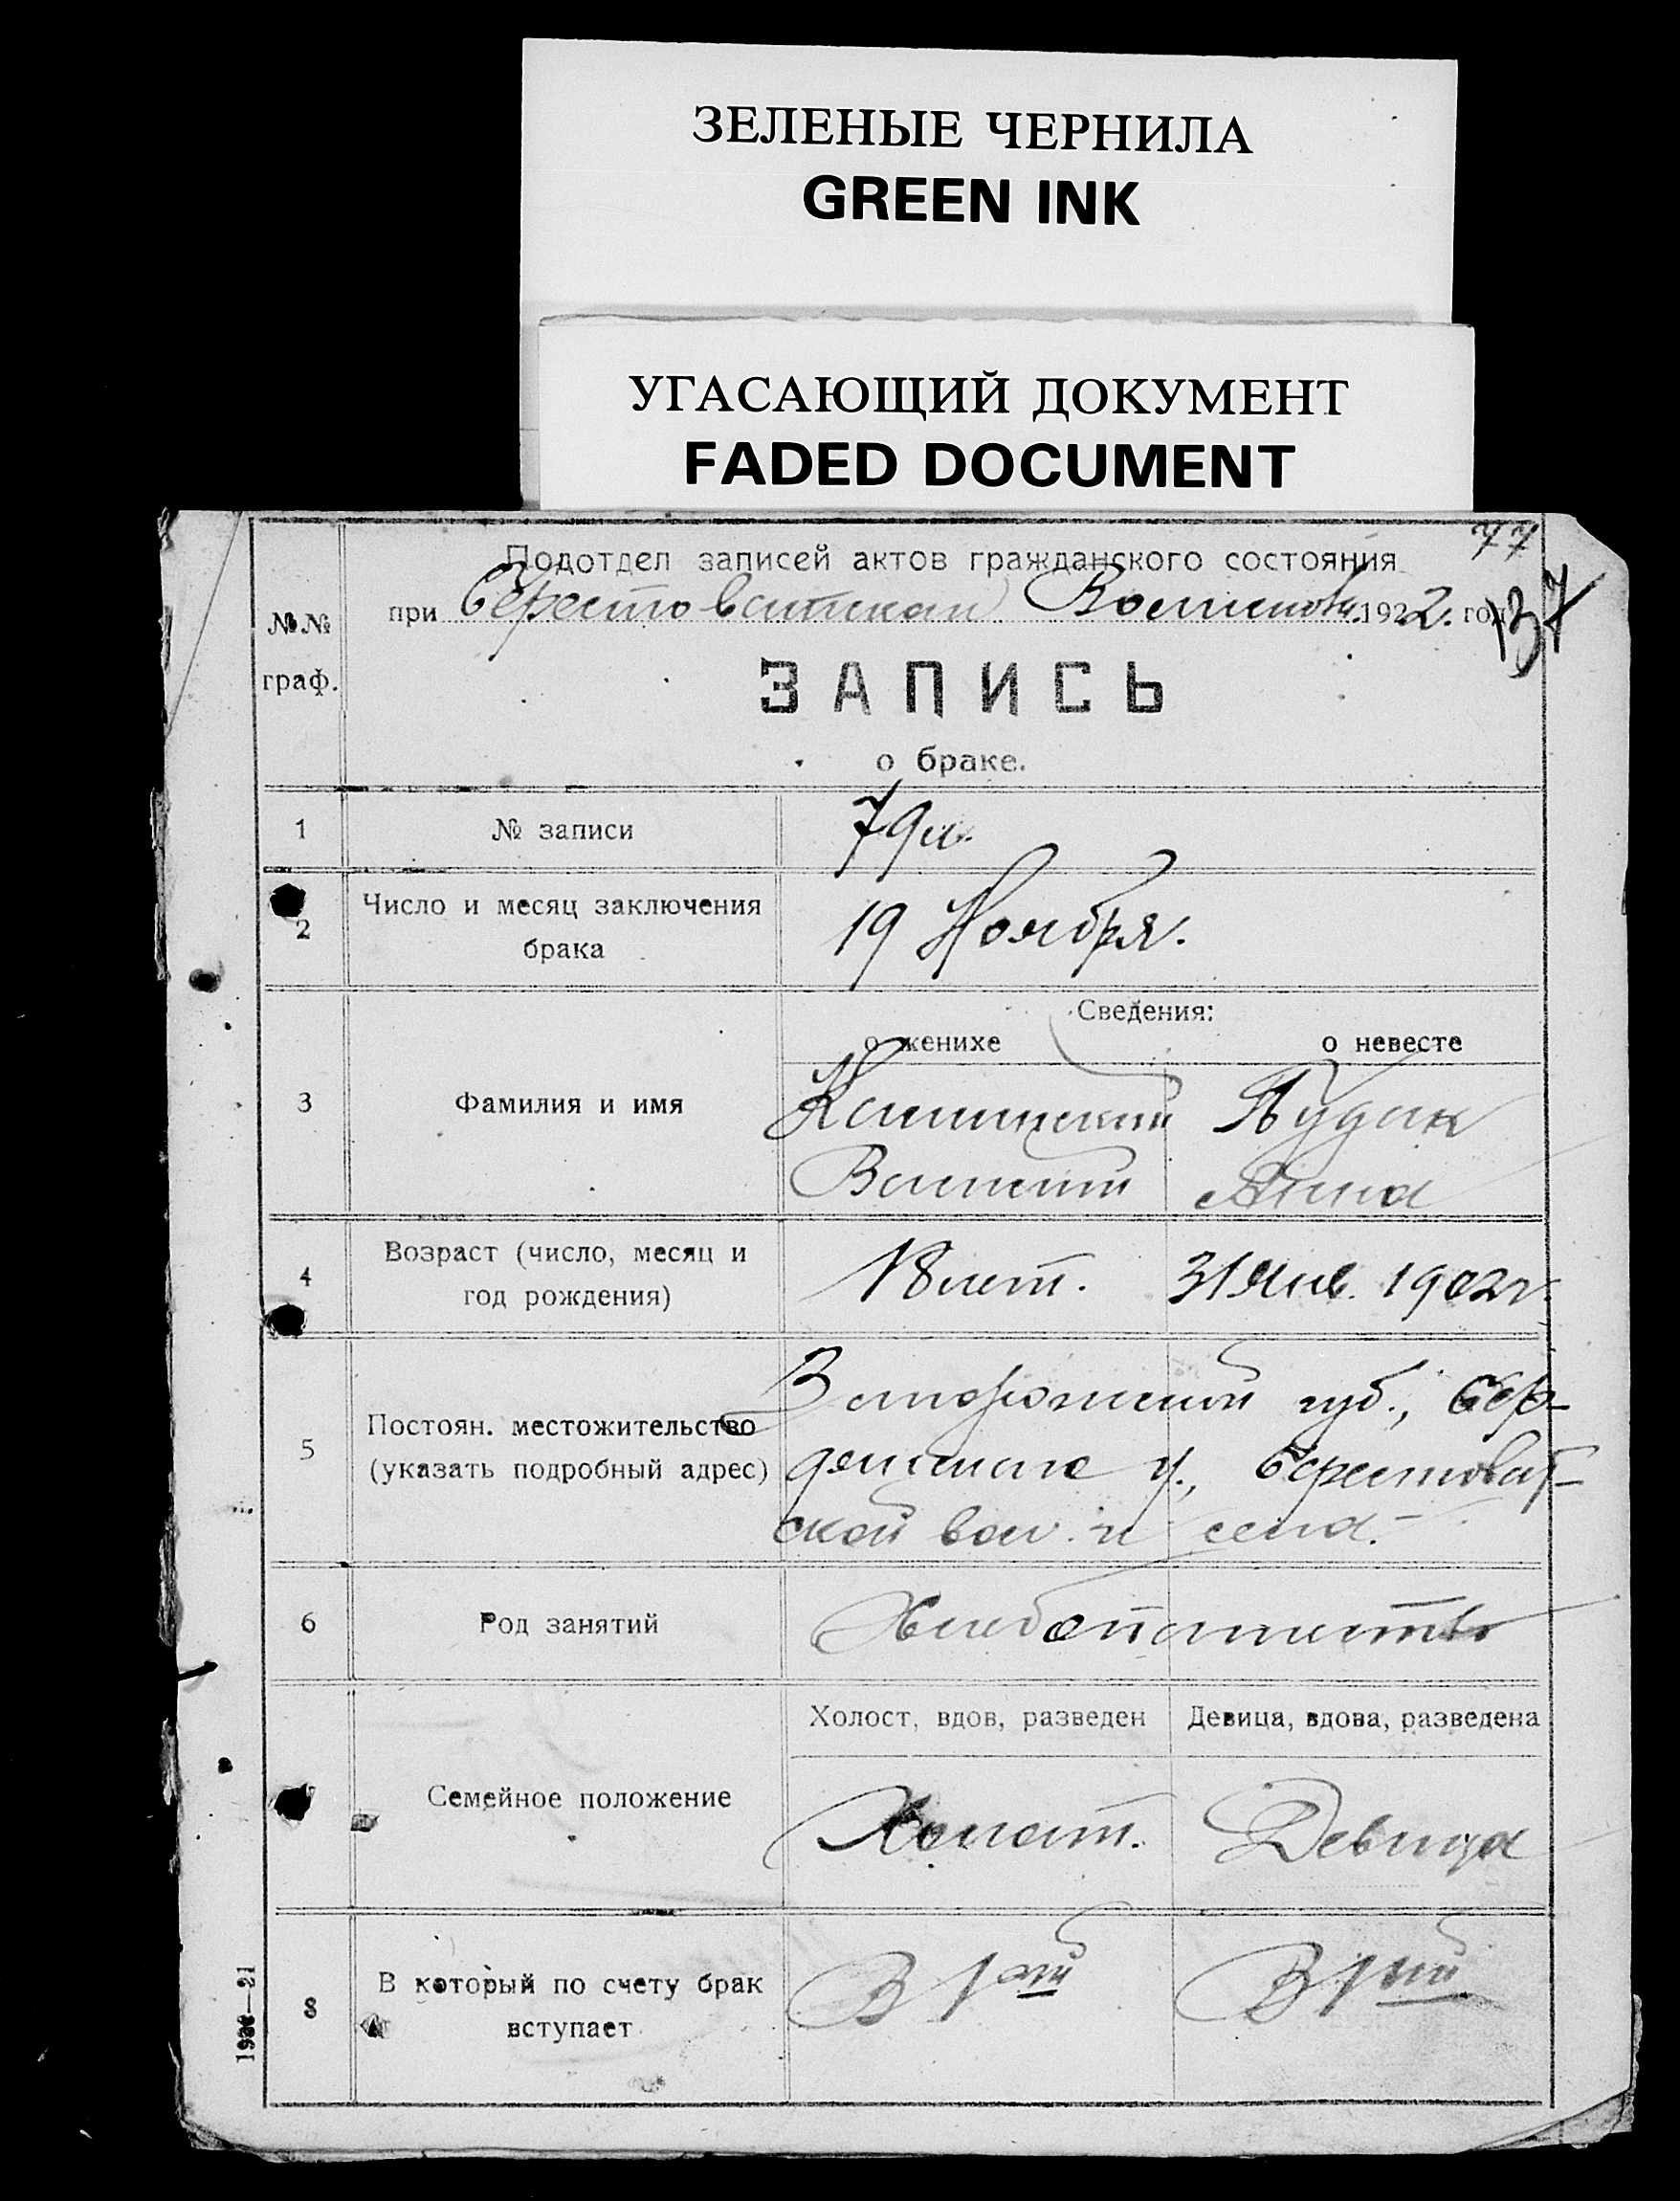 ЗЕЛЕНЫЕ ЧЕРНИЛА
GREEN INK
УГАСАЮЩИЙ ДОКУМЕНТ
FADED DOCUMENT
77
Подотдел записей актов гражданского состояния
при Берестоватском 1922. год
137
№№ граф.
ЗАПИСЬ
о браке.
1 № записи 79
2 Число и месяц заключения брака 19 Ноября.
Сведения:
о женихе о невесте
3 Фамилия и имя
Анна
4 Возраст (число, месяц и год рождения) 18 лет. 31 Янв. 1902 г.
5 Постоян. местожительство (указать подробный адрес)
Запорожской губ., Бер-
дянского у., Берестоват-
ской вол. и села.
6 Род занятий Хлебопашество
Холост, вдов, разведен Девица, вдова, разведена
Семейное положение Холост. Девица
8 В который по счету брак вступает В 1ый В 1ый